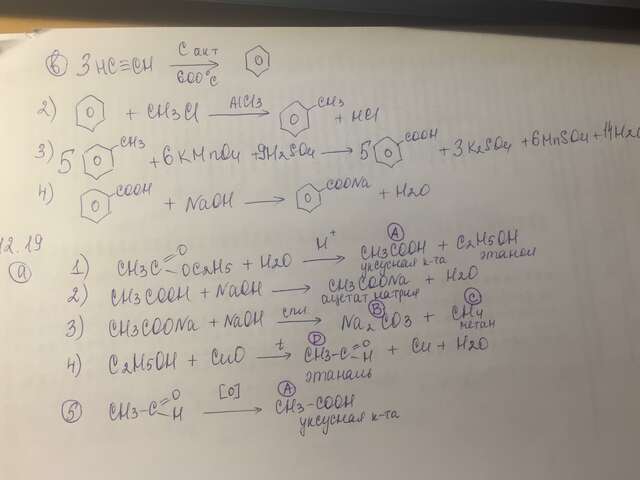 в 3HC≡CH C акт 600°C
2) + CH3Cl AlCl3 → CH3 + HCl
3) 5 CH3 + 6KMnO4 + 9H2SO4 → 5 COOH + 3K2SO4 + 6MnSO4 + 14H2O
4) COOH + NaOH → COONa + H2O
12.19
а 1) CH3C O OC2H5 + H2O H+ → A CH3COOH + C2H5OH
уксусная к-та этанол
2) CH3COOH + NaOH → CH3COONa + H2O
ацетат натрия
3) CH3COONa + NaOH спл → B Na2CO3 + C CH4
метан
4) C2H5OH + CuO t → D CH3-C O H + Cu + H2O
этаналь
5 CH3-C O H [O] → A CH3-COOH
уксусная к-та